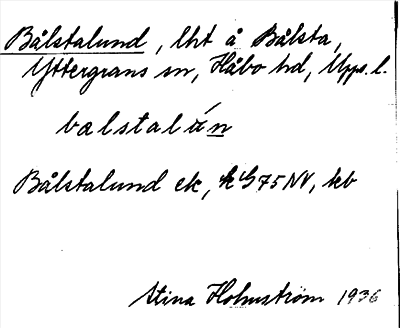 Bålstalund, lht å Bålsta,
Yttergrans sn, Håbo hd, Upps. l.
balstalún
Bålstalund ek, k G 75 NV, kb
Stina Holmström 1936